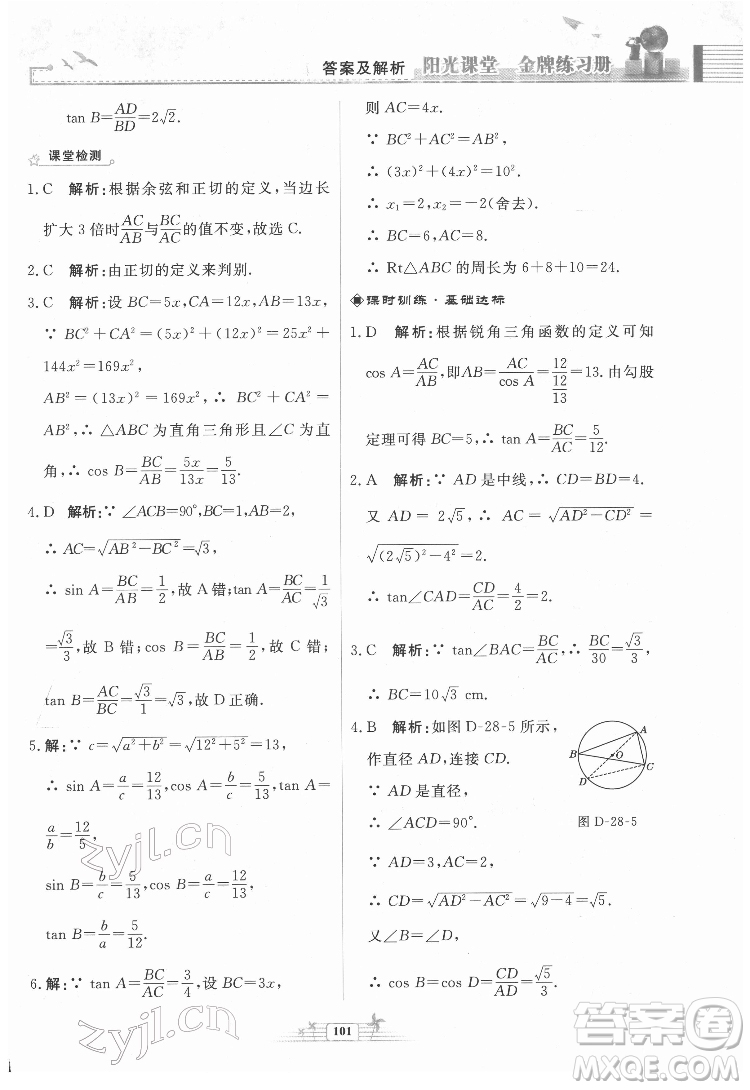 答案及解析 阳光课堂 金牌练习册
tan B=AD/BD=2√2.
课堂检测
1. C 解析:根据余弦和正切的定义,当边长
扩大 3 倍时AC/AB与BC/AC的值不变,故选 C.
2. C 解析:由正切的定义来判别.
3. C 解析:设 BC=5x,CA=12x,AB=13x,
∵ BC²+CA²=(5x)²+(12x)²=25x²+
144x²=169x²,
AB²=(13x)²=169x²,∴ BC²+CA²=
AB²,∴ △ABC 为直角三角形且∠C 为直
角,∴ cos B=BC/AB=5x/13x=5/13.
4. D 解析:∵ ∠ACB=90°,BC=1,AB=2,
∴ AC=√(AB²-BC²)=√3,
∴ sin A=BC/AB=1/2,故 A 错;tan A=BC/AC=1/√3
=√3/3,故 B 错;cos B=BC/AB=1/2,故 C 错;
tan B=AC/BC=√3/1=√3,故 D 正确.
5. 解:∵ c=√(a²+b²)=√(12²+5²)=13,
∴ sin A=a/c=12/13,cos A=b/c=5/13,tan A=
a/b=12/5,
sin B=b/c=5/13,cos B=a/c=12/13,
tan B=b/a=5/12.
6. 解:∵ tan A=BC/AC=3/4,设 BC=3x,
则 AC=4x.
∵ BC²+AC²=AB²,
∴ (3x)²+(4x)²=10²,
∴ x₁=2,x₂=-2(舍去).
∴ BC=6,AC=8.
∴ Rt△ABC 的周长为 6+8+10=24.
课时训练·基础达标
1. D 解析:根据锐角三角函数的定义可知
cos A=AC/AB,即AB=AC/cos A=12/(12/13)=13. 由勾股
定理可得 BC=5,∴ tan A=BC/AC=5/12.
2. A 解析:∵ AD 是中线,∴ CD=BD=4.
又 AD = 2√5,∴ AC = √(AD²-CD²) =
√((2√5)²-4²)=2.
∴ tan∠CAD=CD/AC=4/2=2.
3. C 解析:∵ tan∠BAC=BC/AC,∴ BC/30=√3/3,
∴ BC=10√3 cm.
4. B 解析:如图 D-28-5 所示,
作直径 AD,连接 CD.
∵ AD 是直径,
∴ ∠ACD=90°.
∵ AD=3,AC=2,
∴ CD=√(AD²-AC²)=√(9-4)=√5.
又∠B=∠D,
∴ cos B=cos D=CD/AD=√5/3.
A
B
O
C
D
图 D-28-5
101
zyjl.cn
zyjl.cn
答案圈
MXQE.COM